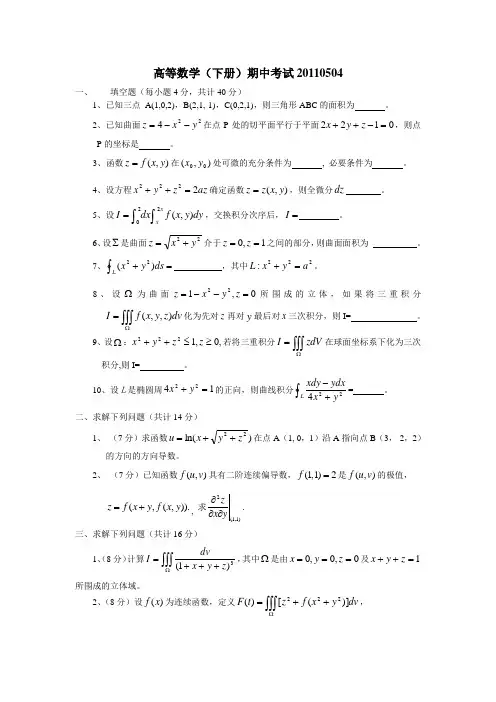 高等数学（下册）期中考试 20110504
一、 填空题（每小题 4 分，共计 40 分）
1、已知三点 A(1,0,2)，B(2,1,-1)，C(0,2,1)，则三角形 ABC 的面积为 。
2、已知曲面 z = 4 − x² − y² 在点 P 处的切平面平行于平面 2x + 2y + z − 1 = 0，则点
P 的坐标是 。
3、函数 z = f(x, y) 在 (x₀, y₀) 处可微的充分条件为 , 必要条件为 。
4、设方程 x² + y² + z² = 2az 确定函数 z = z(x, y)，则全微分 dz 。
5、设 I = ∫₀² dx ∫ₓ²ˣ f(x, y)dy，交换积分次序后，I = 。
6、设 Σ 是曲面 z = √(x² + y²) 介于 z = 0, z = 1 之间的部分，则曲面面积为 。
7、∮_L (x² + y²)ds = ，其中 L : x² + y² = a²。
8、设 Ω 为曲面 z = 1 − x² − y², z = 0 所围成的立体，如果将三重积分
I = ∭_Ω f(x, y, z)dv 化为先对 z 再对 y 最后对 x 三次积分，则 I= 。
9、设 Ω：x² + y² + z² ≤ 1, z ≥ 0, 若将三重积分 I = ∭_Ω zdV 在球面坐标系下化为三次
积分,则 I= 。
10、设 L 是椭圆周 4x² + y² = 1 的正向，则曲线积分 ∮_L (xdy − ydx)/(4x² + y²) = 。
二、求解下列问题（共计 14 分）
1、 （7 分）求函数 u = ln(x + √(y² + z²)) 在点 A（1, 0，1）沿 A 指向点 B（3，-2，2）
的方向的方向导数。
2、 （7 分）已知函数 f(u, v) 具有二阶连续偏导数，f(1,1) = 2 是 f(u, v) 的极值，
z = f(x + y, f(x, y)).，求 ∂²z/∂x∂y |₍₁,₁₎ .
三、求解下列问题（共计 16 分）
1、(8 分）计算 I = ∭_Ω dv/(1 + x + y + z)³，其中 Ω 是由 x = 0, y = 0, z = 0 及 x + y + z = 1
所围成的立体域。
2、（8 分）设 f(x) 为连续函数，定义 F(t) = ∭_Ω [z² + f(x² + y²)]dv，